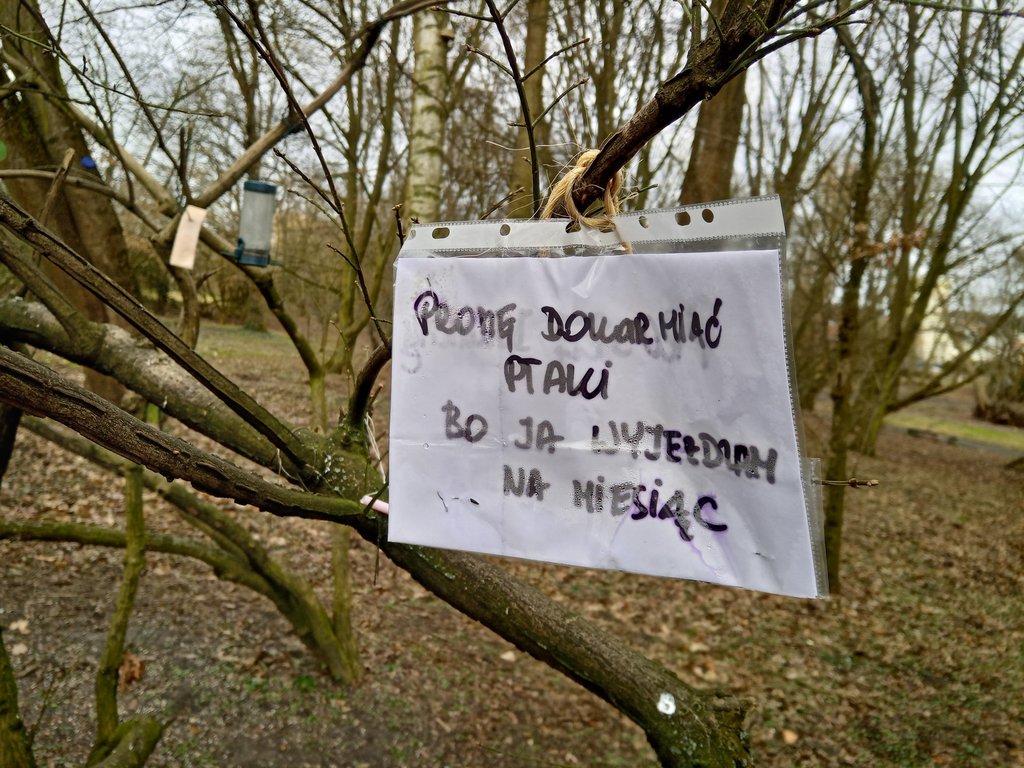 PROSZĘ DOKARMIAĆ
PTAKI
BO JA WYJEŻDŻAM
NA MIESIĄC